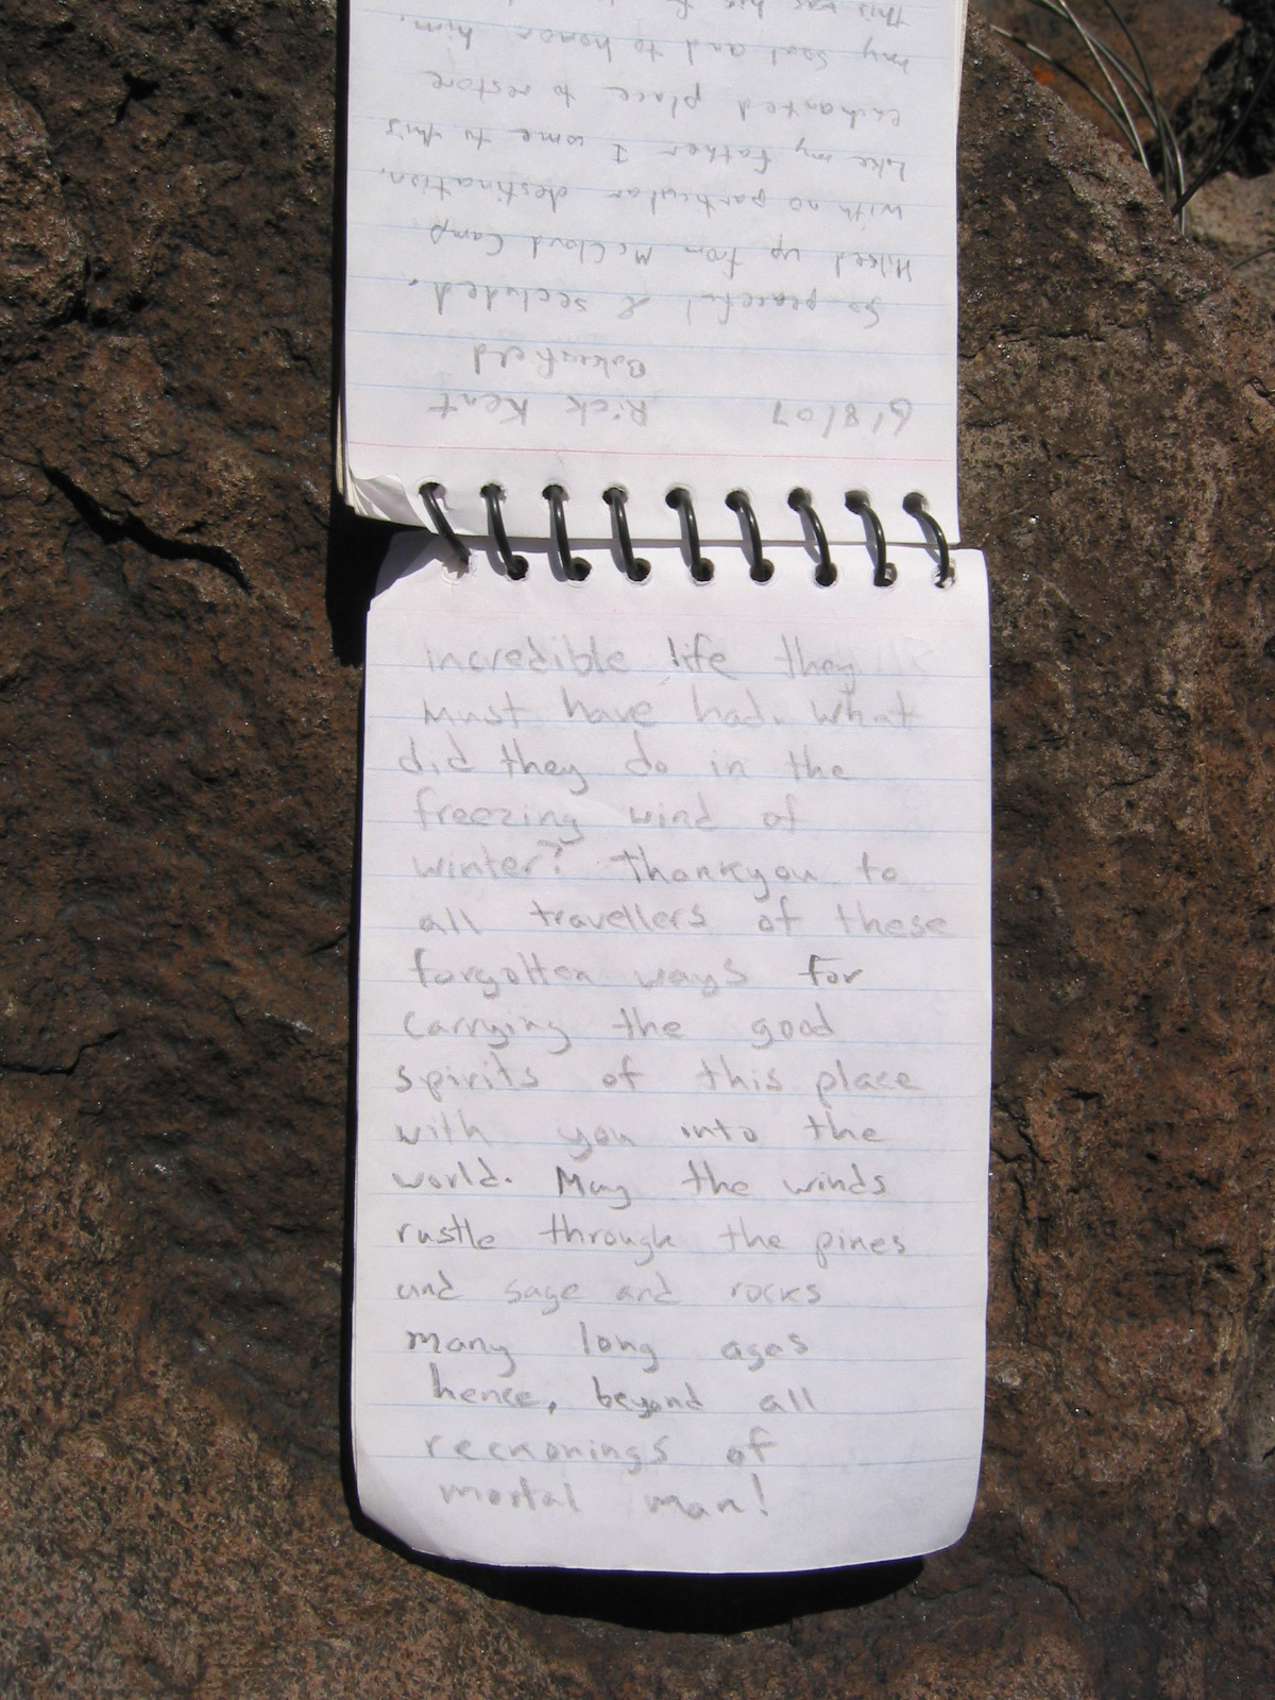 6/8/07 Rick Kent
Bakersfield
So peaceful & secluded.
Hiked up from McCloud Camp
with no particular destination.
Like my father I come to this
enchanted place to restore
my soul and to honor him.
This was his
incredible life they
must have had. What
did they do in the
freezing wind of
winter? Thankyou to
all travellers of these
forgotten ways for
carrying the good
spirits of this place
with you into the
world. May the winds
rustle through the pines
and sage and rocks
many long ages
hence, beyond all
recknonings of
mortal man!